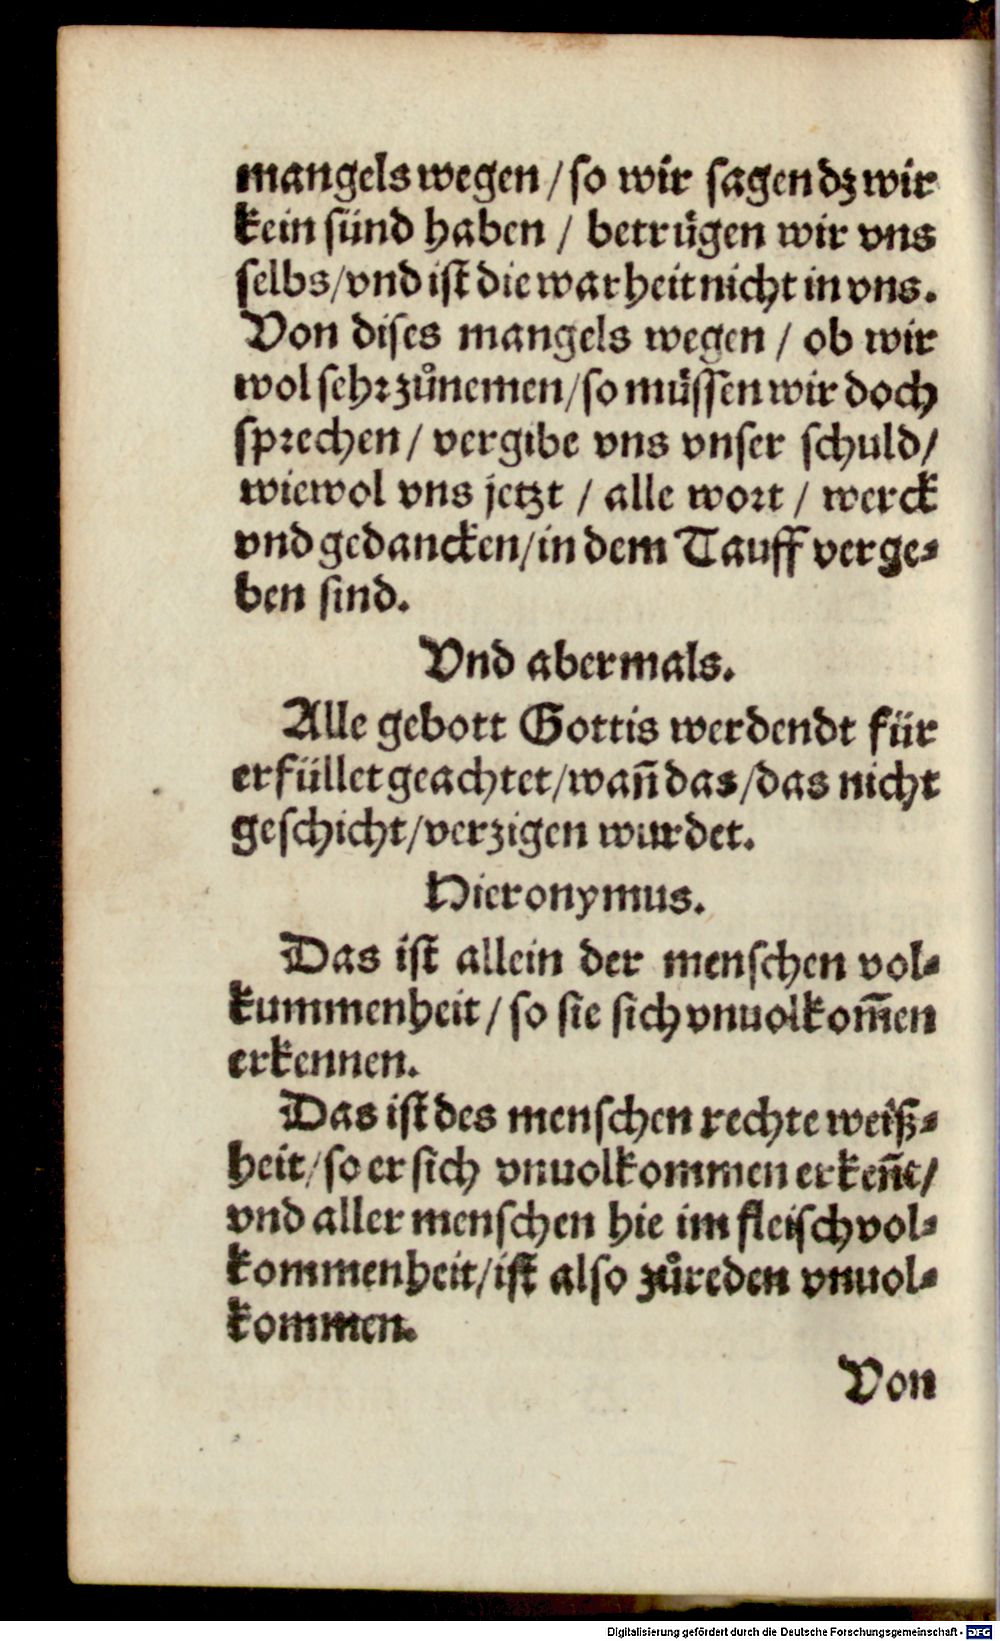 mangels wegen / so wir sagen dz wir
kein sünd haben / betrügen wir vns
selbs / vnd ist die warheit nicht in vns.
Von dises mangels wegen / ob wir
wol sehr zůnemen / so müssen wir doch
sprechen / vergibe vns vnser schuld /
wiewol vns jetzt / alle wort / werck
vnd gedancken / in dem Tauff verge⸗
ben sind.
Vnd abermals.
Alle gebott Gottis werdendt für
erfüllet geachtet / wañ das / das nicht
geschicht / verzigen wurdet.
Hieronymus.
Das ist allein der menschen vol⸗
kummenheit / so sie sich vnuolkom̃en
erkennen.
Das ist des menschen rechte weiß⸗
heit / so er sich vnuolkommen erkeñt /
vnd aller menschen hie im fleisch vol⸗
kommenheit / ist also zůreden vnuol⸗
kommen.
Von
Digitalisierung gefördert durch die Deutsche Forschungsgemeinschaft - DFG